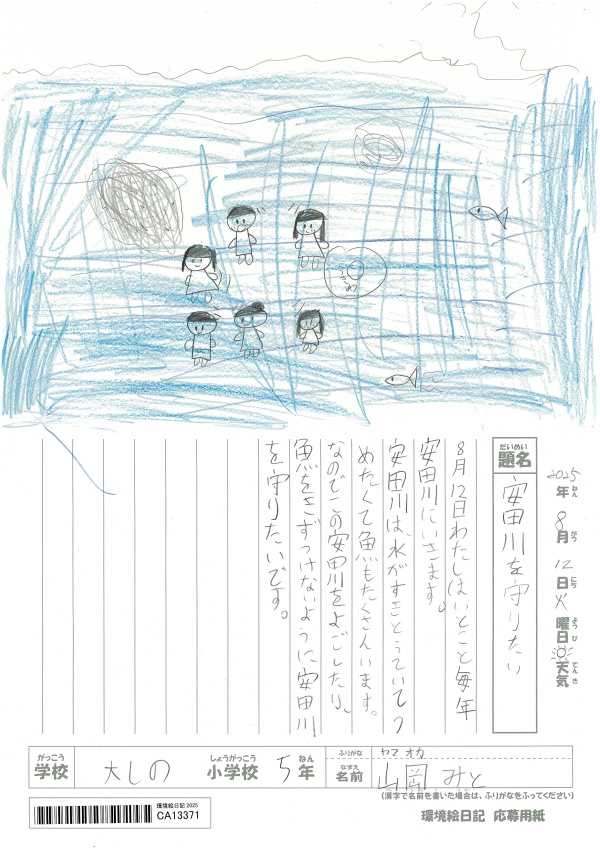 2025年ねん8月がつ12日にち火曜日ようび☀天気てんき
だいめい
題名
安田川を守りたい
8月12日わたしはいとこと毎年
安田川にいきます。
安田川は、水がすきとうていてつ
めたくて魚もたくさんいます。
なのでこの安田川をよごしたり、
魚をきずつけないように安田川
を守りたいです。
がっこう
学校
大しの
しょうがっこう
小学校
5年ねん
ふりがな
ヤマ オカ
なまえ
名前
山岡 みと
(漢字で名前を書いた場合は、ふりがなをふってください)
環境絵日記2025
CA13371
環境絵日記 応募用紙